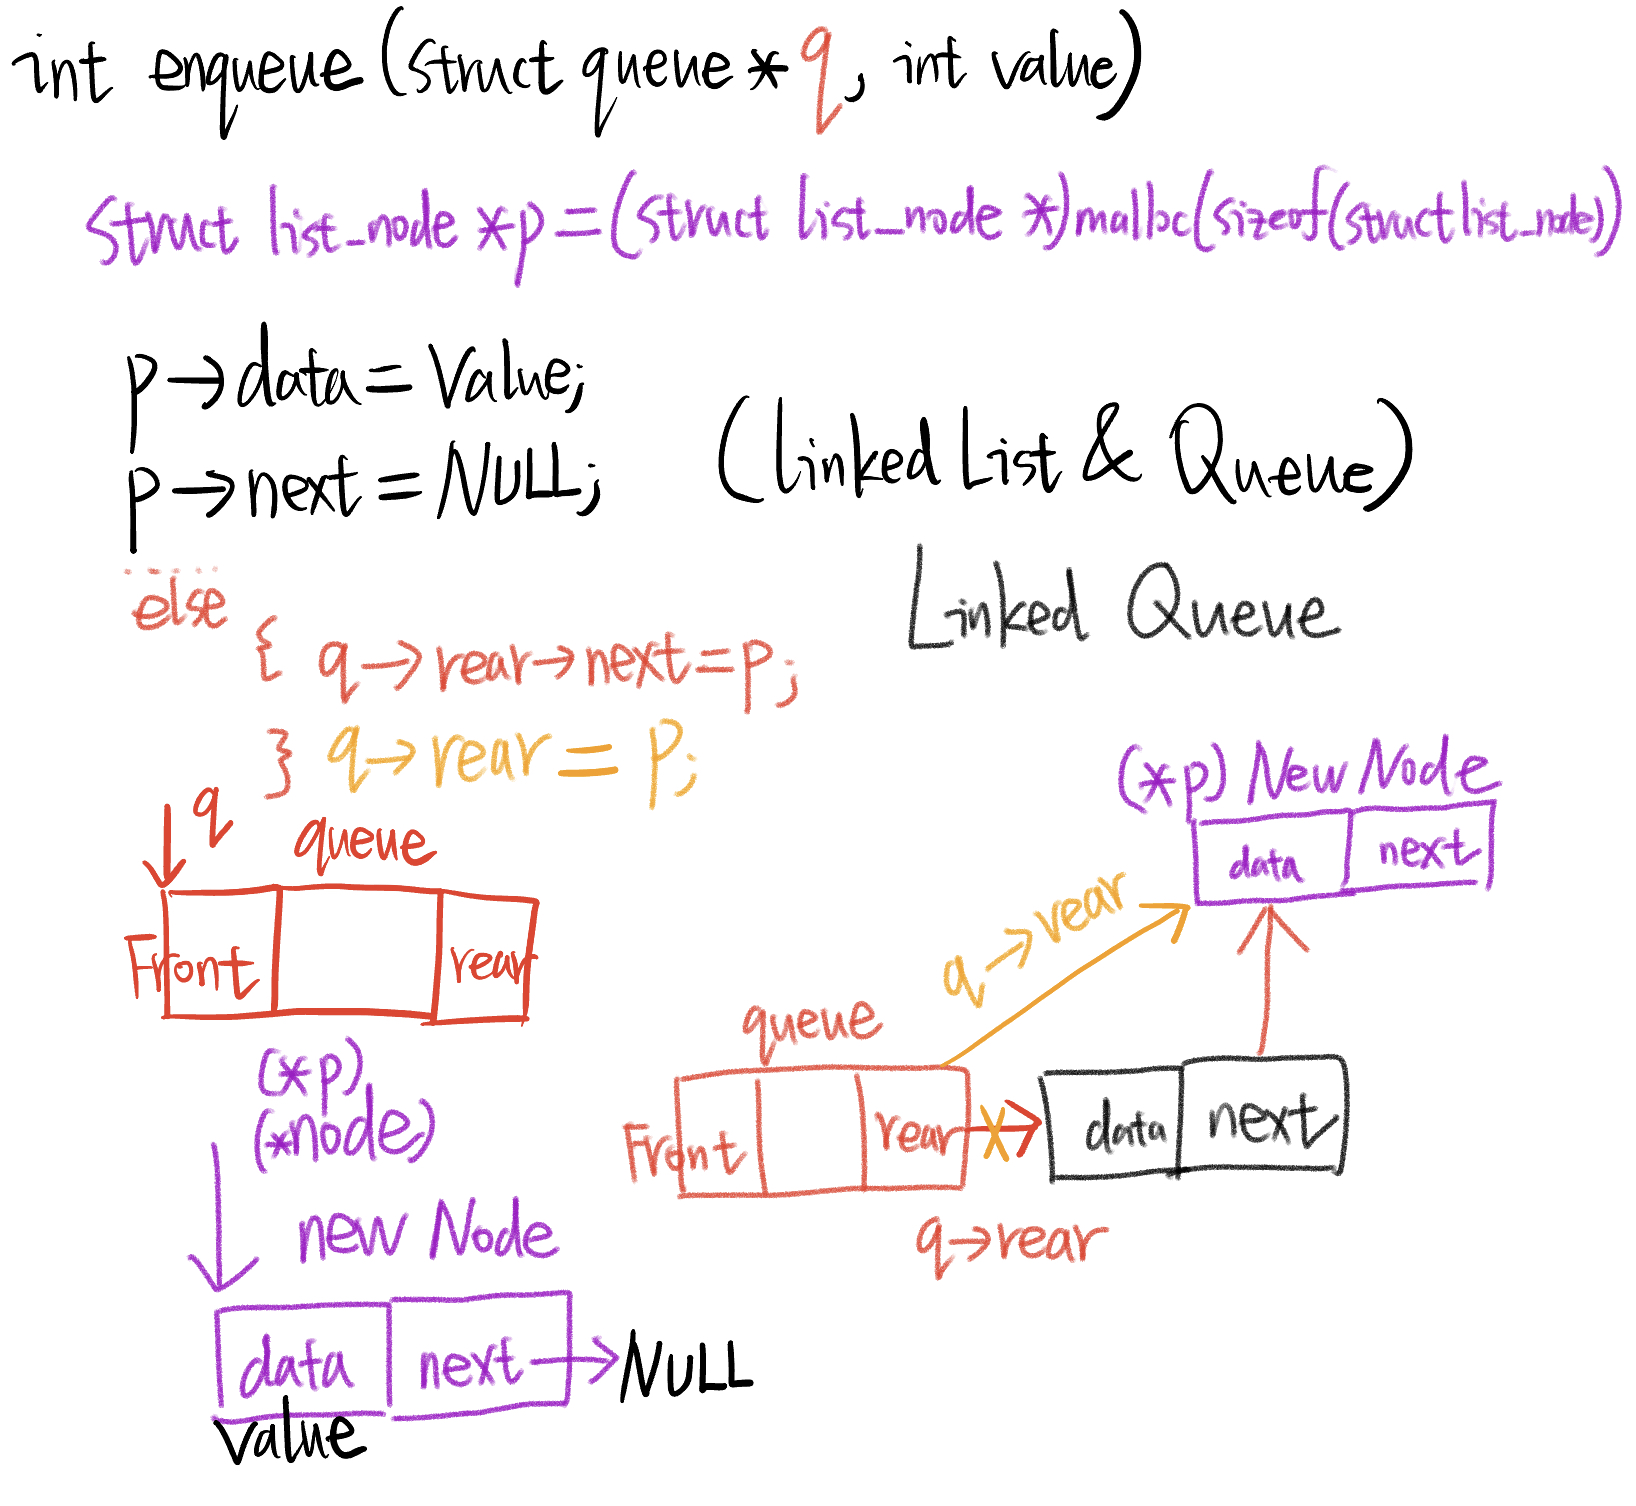 int enqueue (struct queue * q, int value)
struct list_node *p = (struct list_node *)malloc(sizeof(struct list_node))
p→data = Value;
p→next = NULL;
(linked List & Queue)
Linked Queue
......
else
{ q→rear→next=p;
} q→rear = p;
q
queue
Front rear
(*p)
(*node)
new Node
data next → NULL
value
(*p) New Node
data next
q→rear
queue
Front rear
data next
q→rear